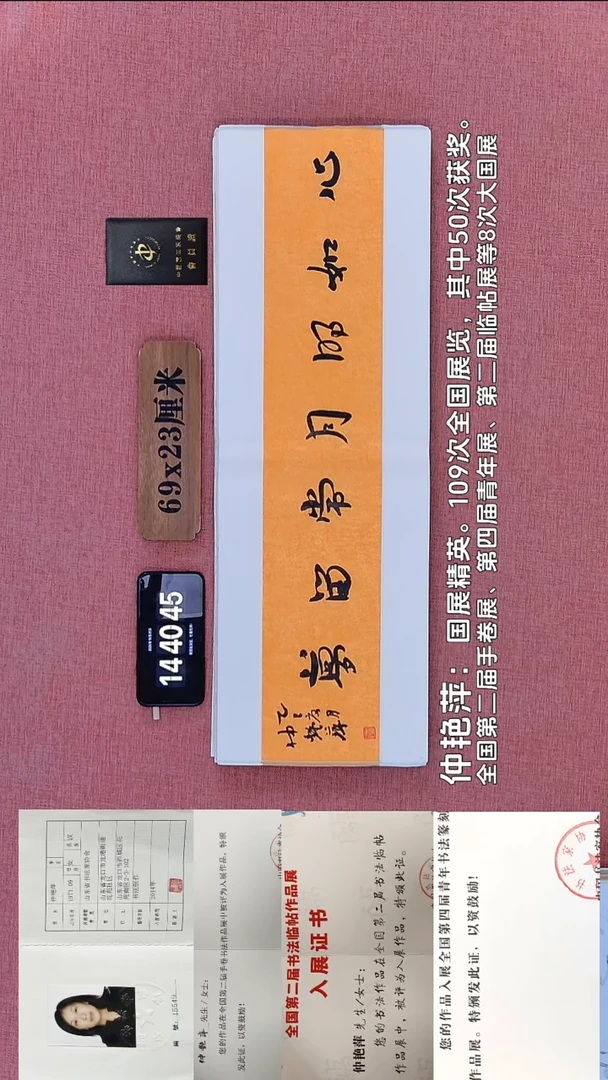 仲艳萍：国展精英。109次全国展览，其中50次获奖。
全国第二届手卷展、第四届青年展、第二届临帖展等8次大国展
会员证
69x23厘米
14 40 45
心如明月常留
山东省书法家协会
先生/女士：
您的作品在全国第二届手卷书法作品展中被评为入展作品，特颁
发此证，以资鼓励！
全国第二届书法临帖作品展
入展证书
仲艳萍先生/女士：
您的书法作品在全国第二届书法临帖
作品展中，被评为入展作品，特颁此证。
您的作品入展全国第四届青年书法篆刻
作品展。特颁发此证，以资鼓励！